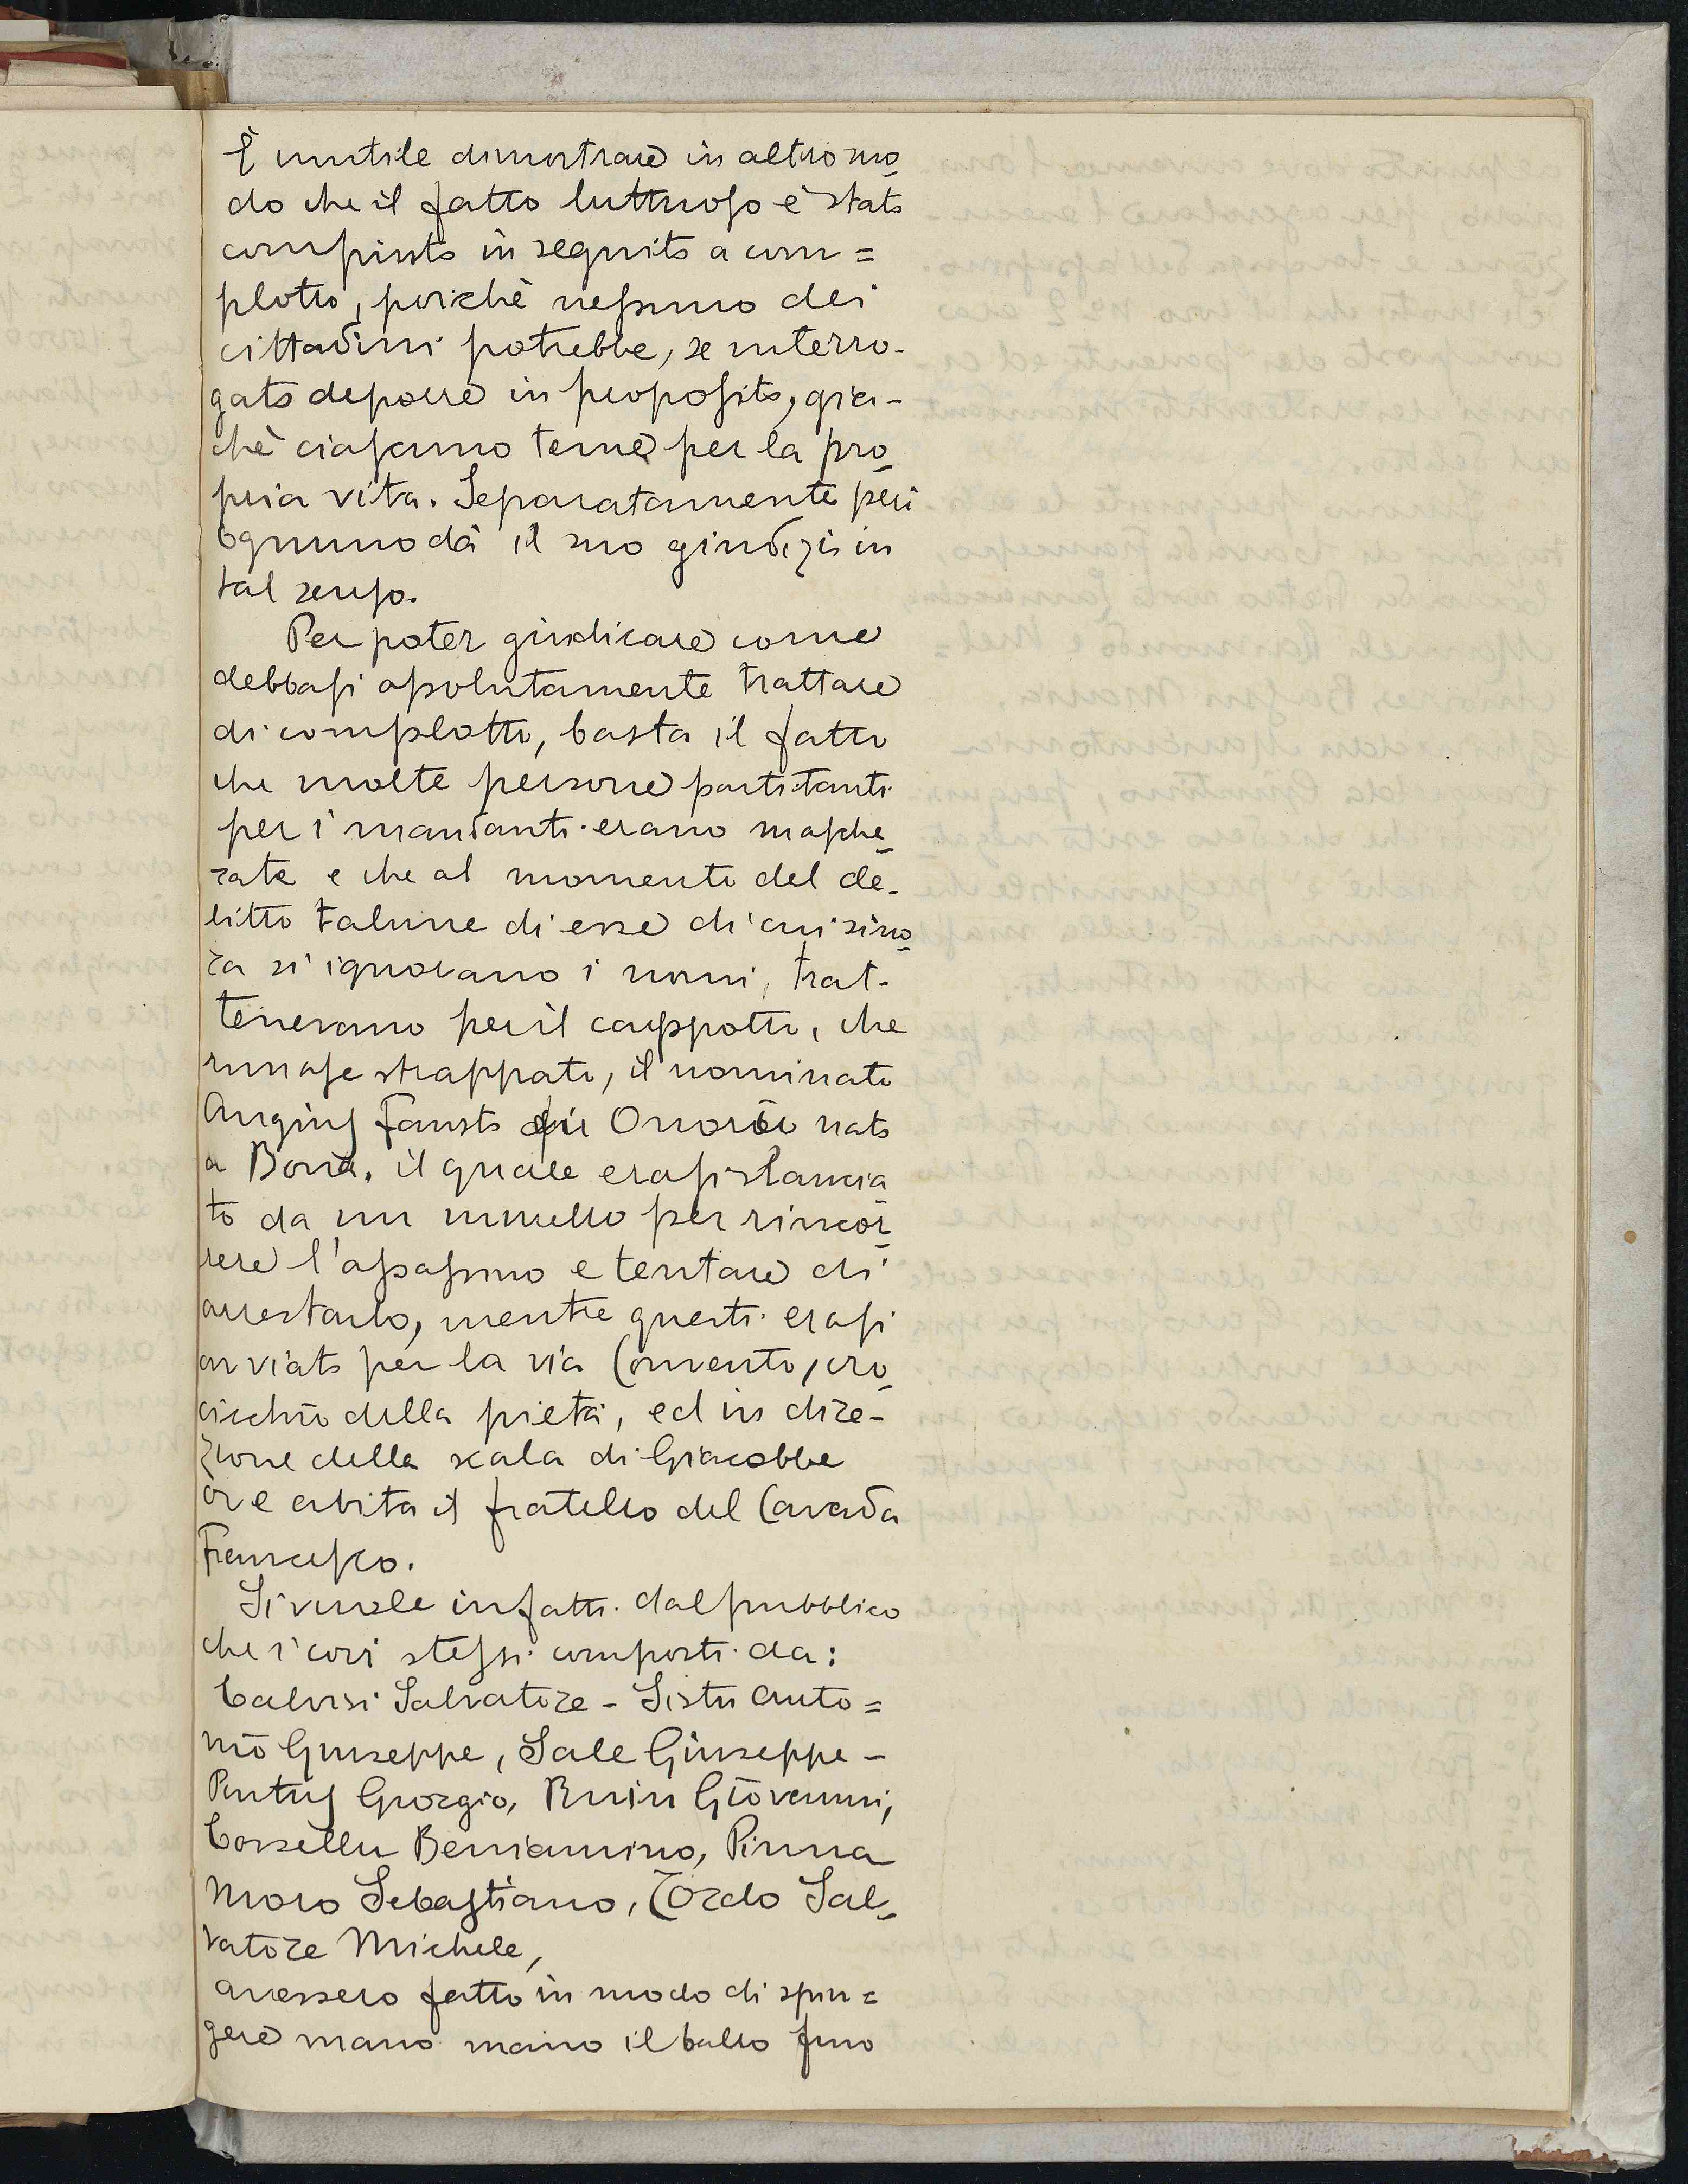 È inutile dimostrare in altro mo_
do che il fatto luttuoso è stato
compiuto in seguito a com=
plotto, poichè nessuno dei
cittadini potrebbe, se interro-
gato deporre in proposito, gia-
chè ciascuno teme per la pro_
pria vita. Separatamente però
ognuno dà il suo giudizio in
tal senso.
Per poter giudicare come
debbasi assolutamente trattare
di complotto, basta il fatto
che molte persone partitanti
per i mandanti erano masche_
rate e che al momento del de-
litto talune di esse di cui sino_
ra si ignorano i nomi, trat-
tenevano per il cappotto, che
rimase strappato, il nominato
Angius Fausto fu Onorio nato
a Bono, il quale erasi slancia_
to da un muretto per rincor_
rere l'assassino e tentare di
arrestarlo, mentre questi erasi
avviato per la via Convento, cro_
cicchio della pietà, ed in dire-
zione della scala di Giacobbe
ove abita il fratello del Cavada
Francesco.
Si vuole infatti dal pubblico
che i cori stessi composti da:
Calvisi Salvatore - Sistu Anto=
nio Giuseppe, Sale Giuseppe -
Pintus Giorgio, Bruiu Giovanni,
Cossellu Beniamino, Pinna
Moro Sebastiano, Tordo Sal_
vatore Michele,
avessero fatto in modo di spin=
gere mano mano il ballo fino